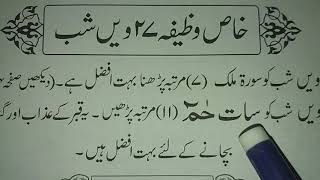 خاص وظیفہ ۲۷ ویں شب
ویں شب کو سورۃ ملک (۷) مرتبہ پڑھنا بہت افضل ہے۔ (دیکھیں صفحہ
ویں شب کو سات حٰمٓ (۱۱) مرتبہ پڑھیں۔ یہ قبر کے عذاب اور
بچانے کے لئے بہت افضل ہیں۔